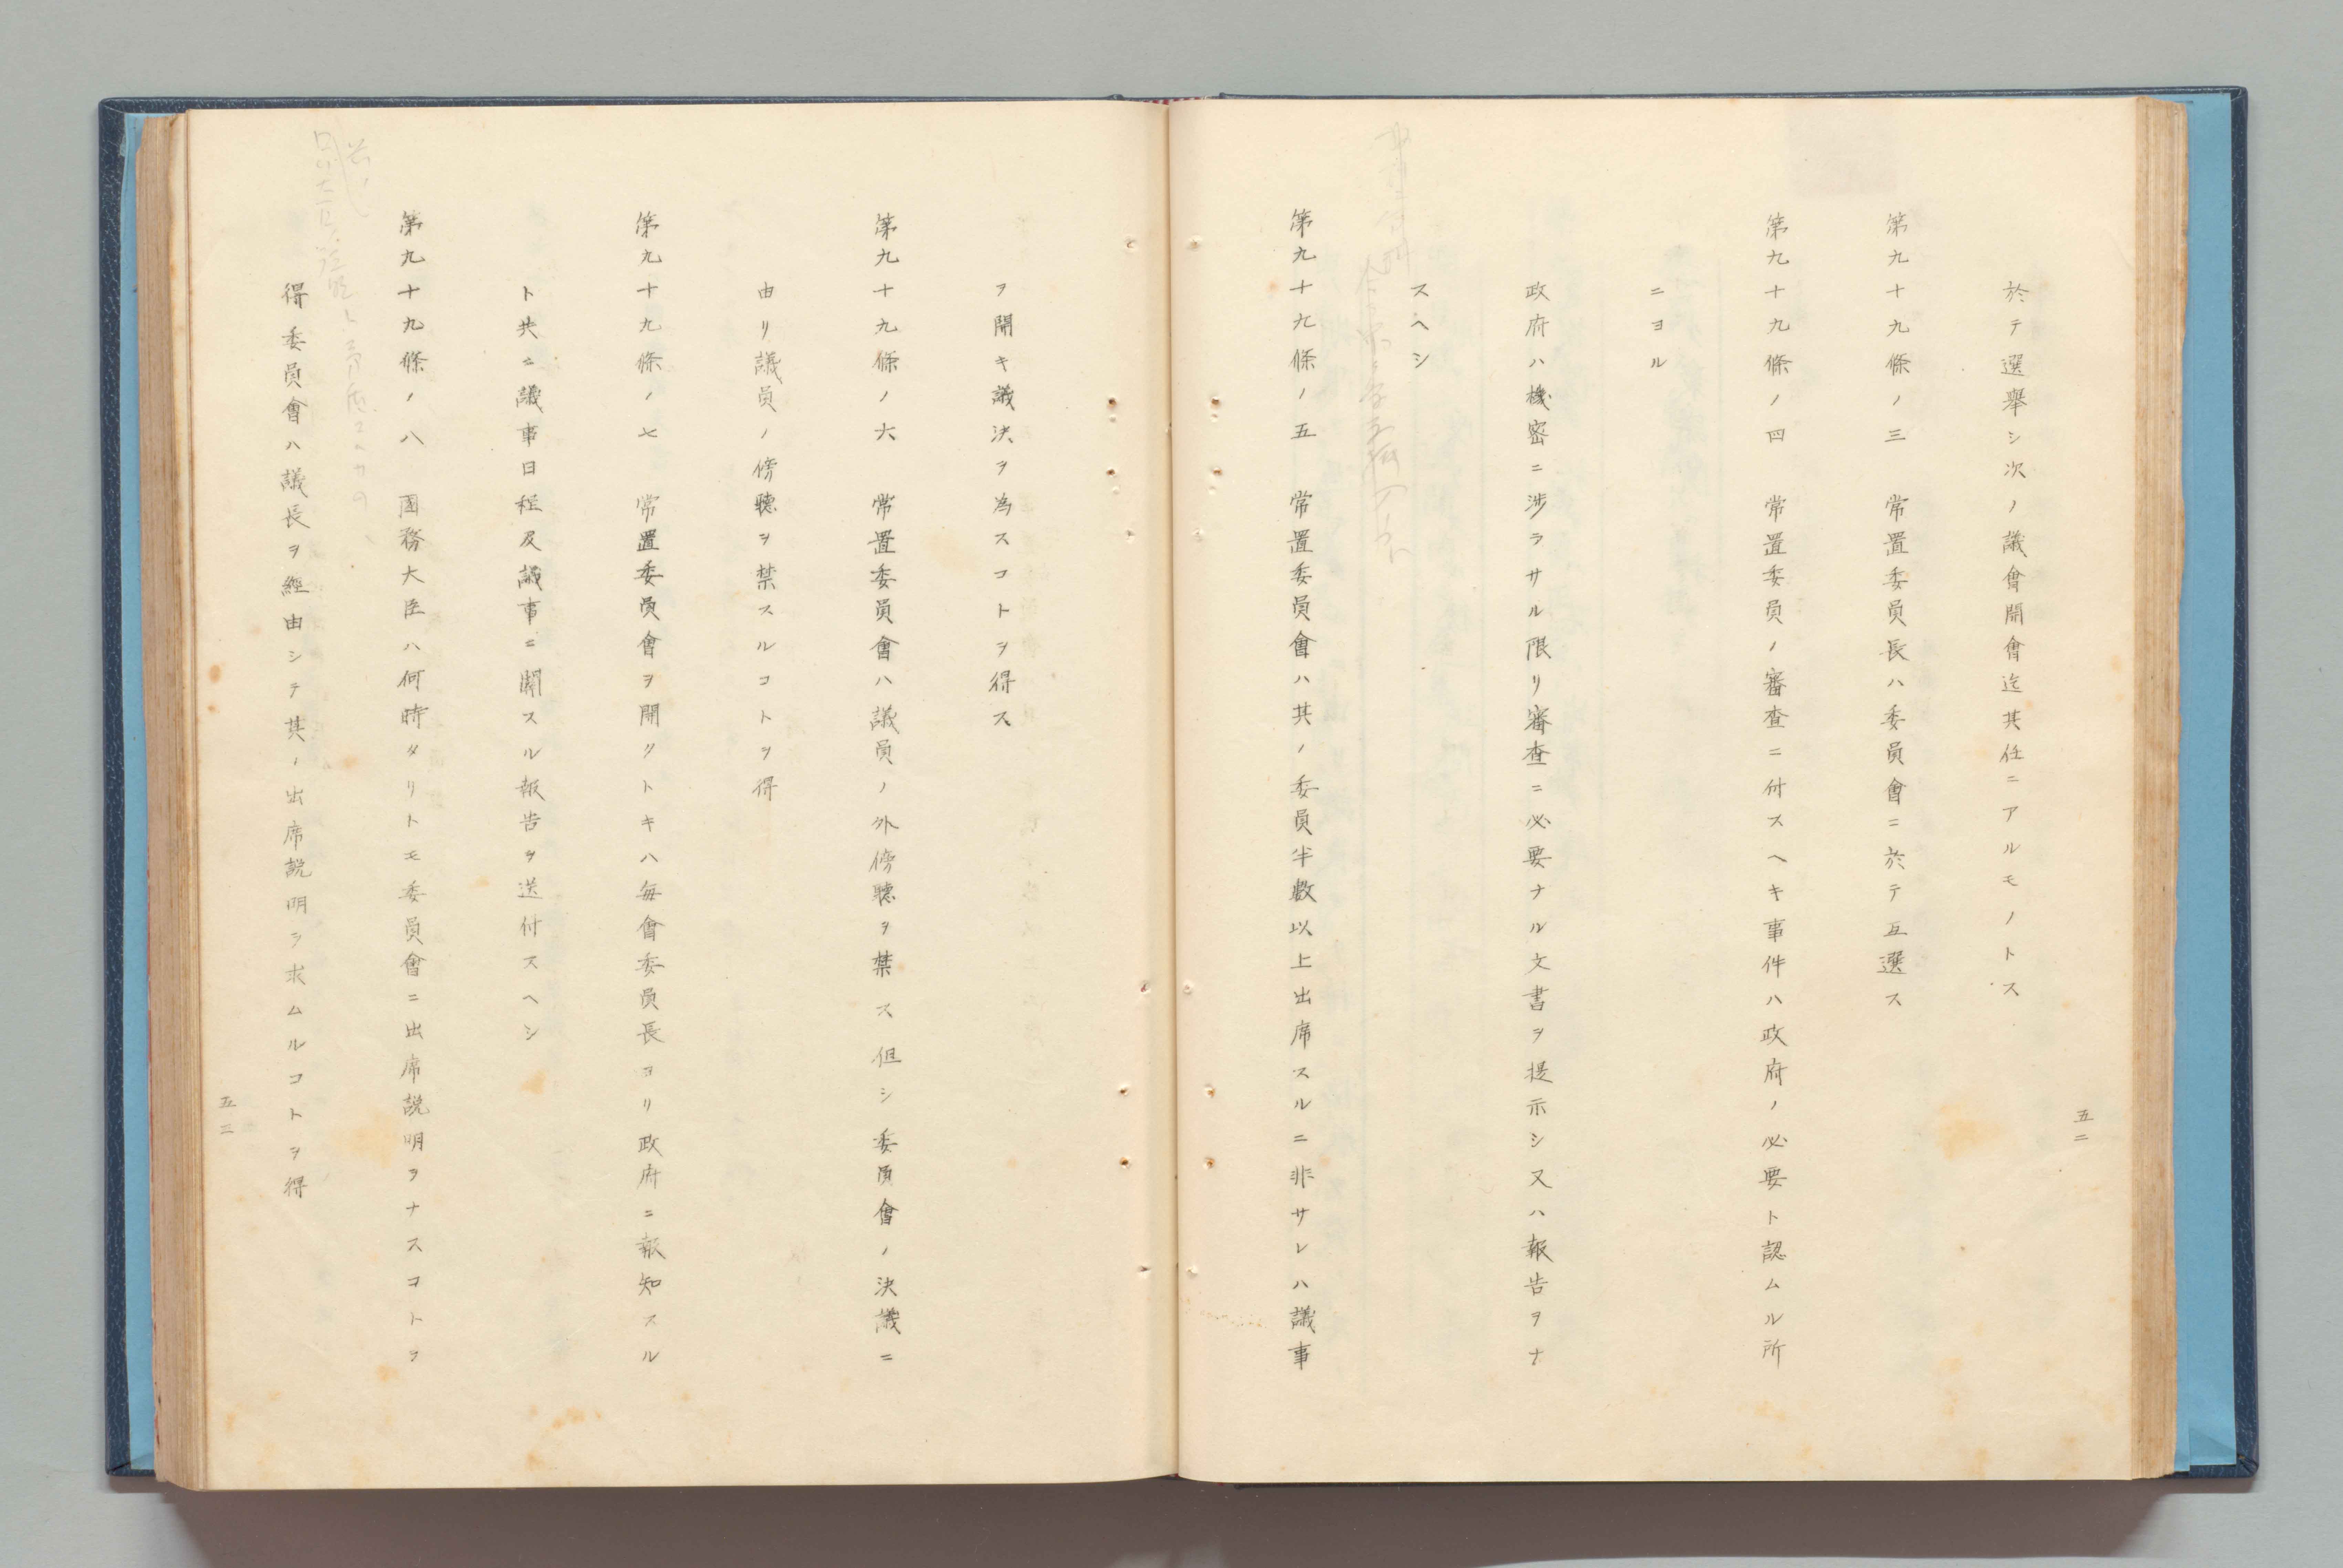 於テ選擧シ次ノ議會開會迄其任ニアルモノトス
第九十九條ノ三　常置委員長ハ委員會ニ於テ互選ス
第九十九條ノ四　常置委員ノ審査ニ付スヘキ事件ハ政府ノ必要ト認ムル所
ニヨル
政府ハ機密ニ渉ラサル限リ審査ニ必要ナル文書ヲ提示シ又ハ報告ヲナ
スヘシ
第九十九條ノ五　常置委員會ハ其ノ委員半數以上出席スルニ非サレハ議事
五二
ヲ開キ議決ヲ為スコトヲ得ス
第九十九條ノ六　常置委員會ハ議員ノ外傍聽ヲ禁ス但シ委員會ノ決議ニ
由リ議員ノ傍聽ヲ禁スルコトヲ得
第九十九條ノ七　常置委員會ヲ開クトキハ每會委員長ヨリ政府ニ報知スル
ト共ニ議事日程及議事ニ關スル報告ヲ送付スヘシ
第九十九條ノ八　國務大臣ハ何時タリトモ委員會ニ出席説明ヲナスコトヲ
得委員會ハ議長ヲ經由シテ其ノ出席説明ヲ求ムルコトヲ得
五三